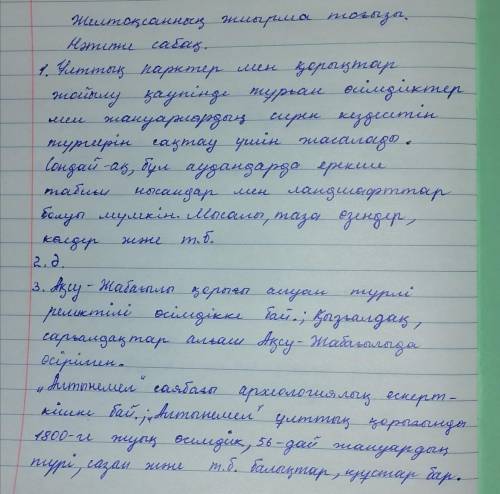 Желтоқсанның жиырма тоғызы.
Нәтиже сабақ.
1. Ұлттық парктер мен қорықтар
жойылу қаупінде тұрған өсімдіктер
мен жануарлардың сирек кездесетін
түрлерін сақтау үшін жасалады.
Сондай-ақ, бұл аудандарда ерекше
табиғи нысандар мен ландшафттар
болуы мүмкін. Мысалы, таза өзендер,
көлдер және т.б.
2. Д.
3. Ақсу-Жабағылы қорығы алуан түрлі
реликтілі өсімдікке бай.; Қызғалдақ,
сарғалдақтар алғаш Ақсу-Жабағылыда
өсірілген.
„Алтынемел" саябағы археологиялық ескерт-
кішке бай.; „Алтынемел" ұлттық қорығында
1800-ге жуық өсімдік, 56-дай жануардың
түрі, сазан және т.б. балықтар, құстар бар.